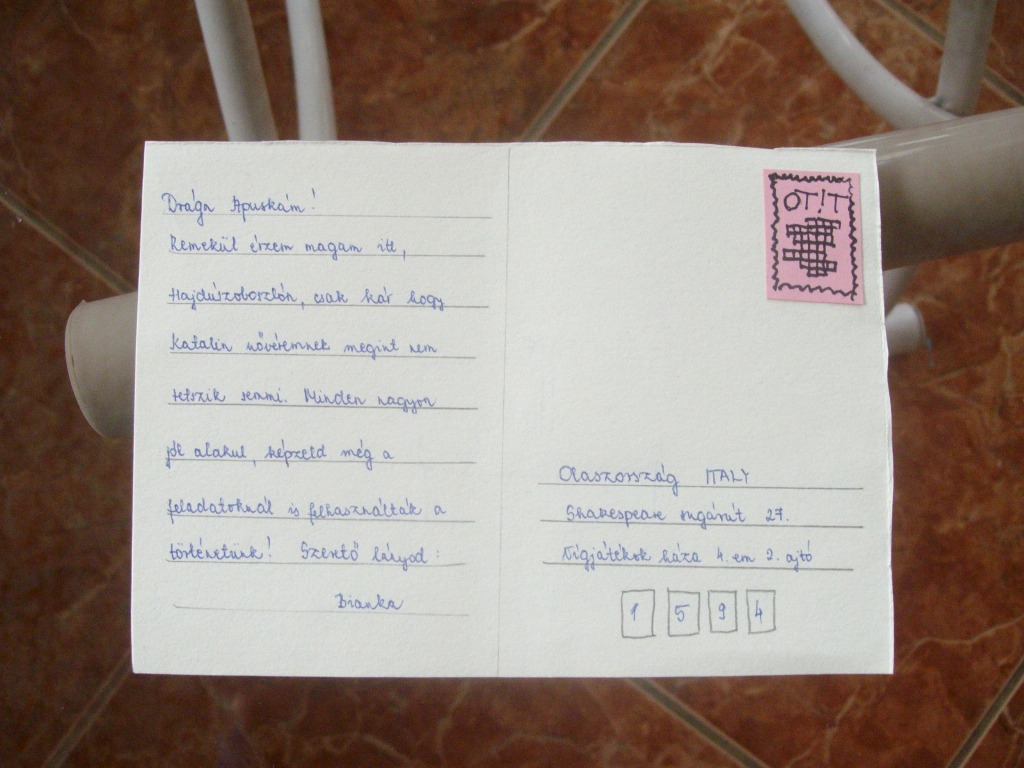 Drága Apuskám!
Remekül érzem magam itt,
Hajdúszoboszlón, csak kár hogy
Katalin nővéremnek megint nem
tetszik semmi. Minden nagyon
jól alakul, képzeld még a
feladatoknál is felhasználták a
történetünk! Szerető lányod:
Bianka
OT!T
Olaszország ITALY
Shakespeare sugárút 27.
Vígjátékok háza 4. em 2. ajtó
1 5 9 4